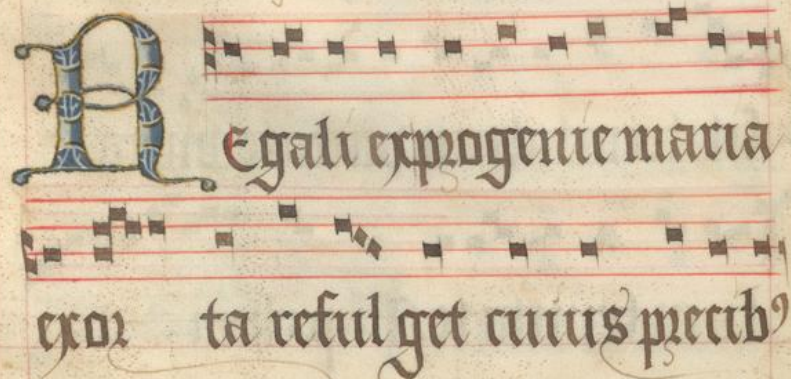 REgali exprogenie maria
exor ta reful get cuius precibꝰ